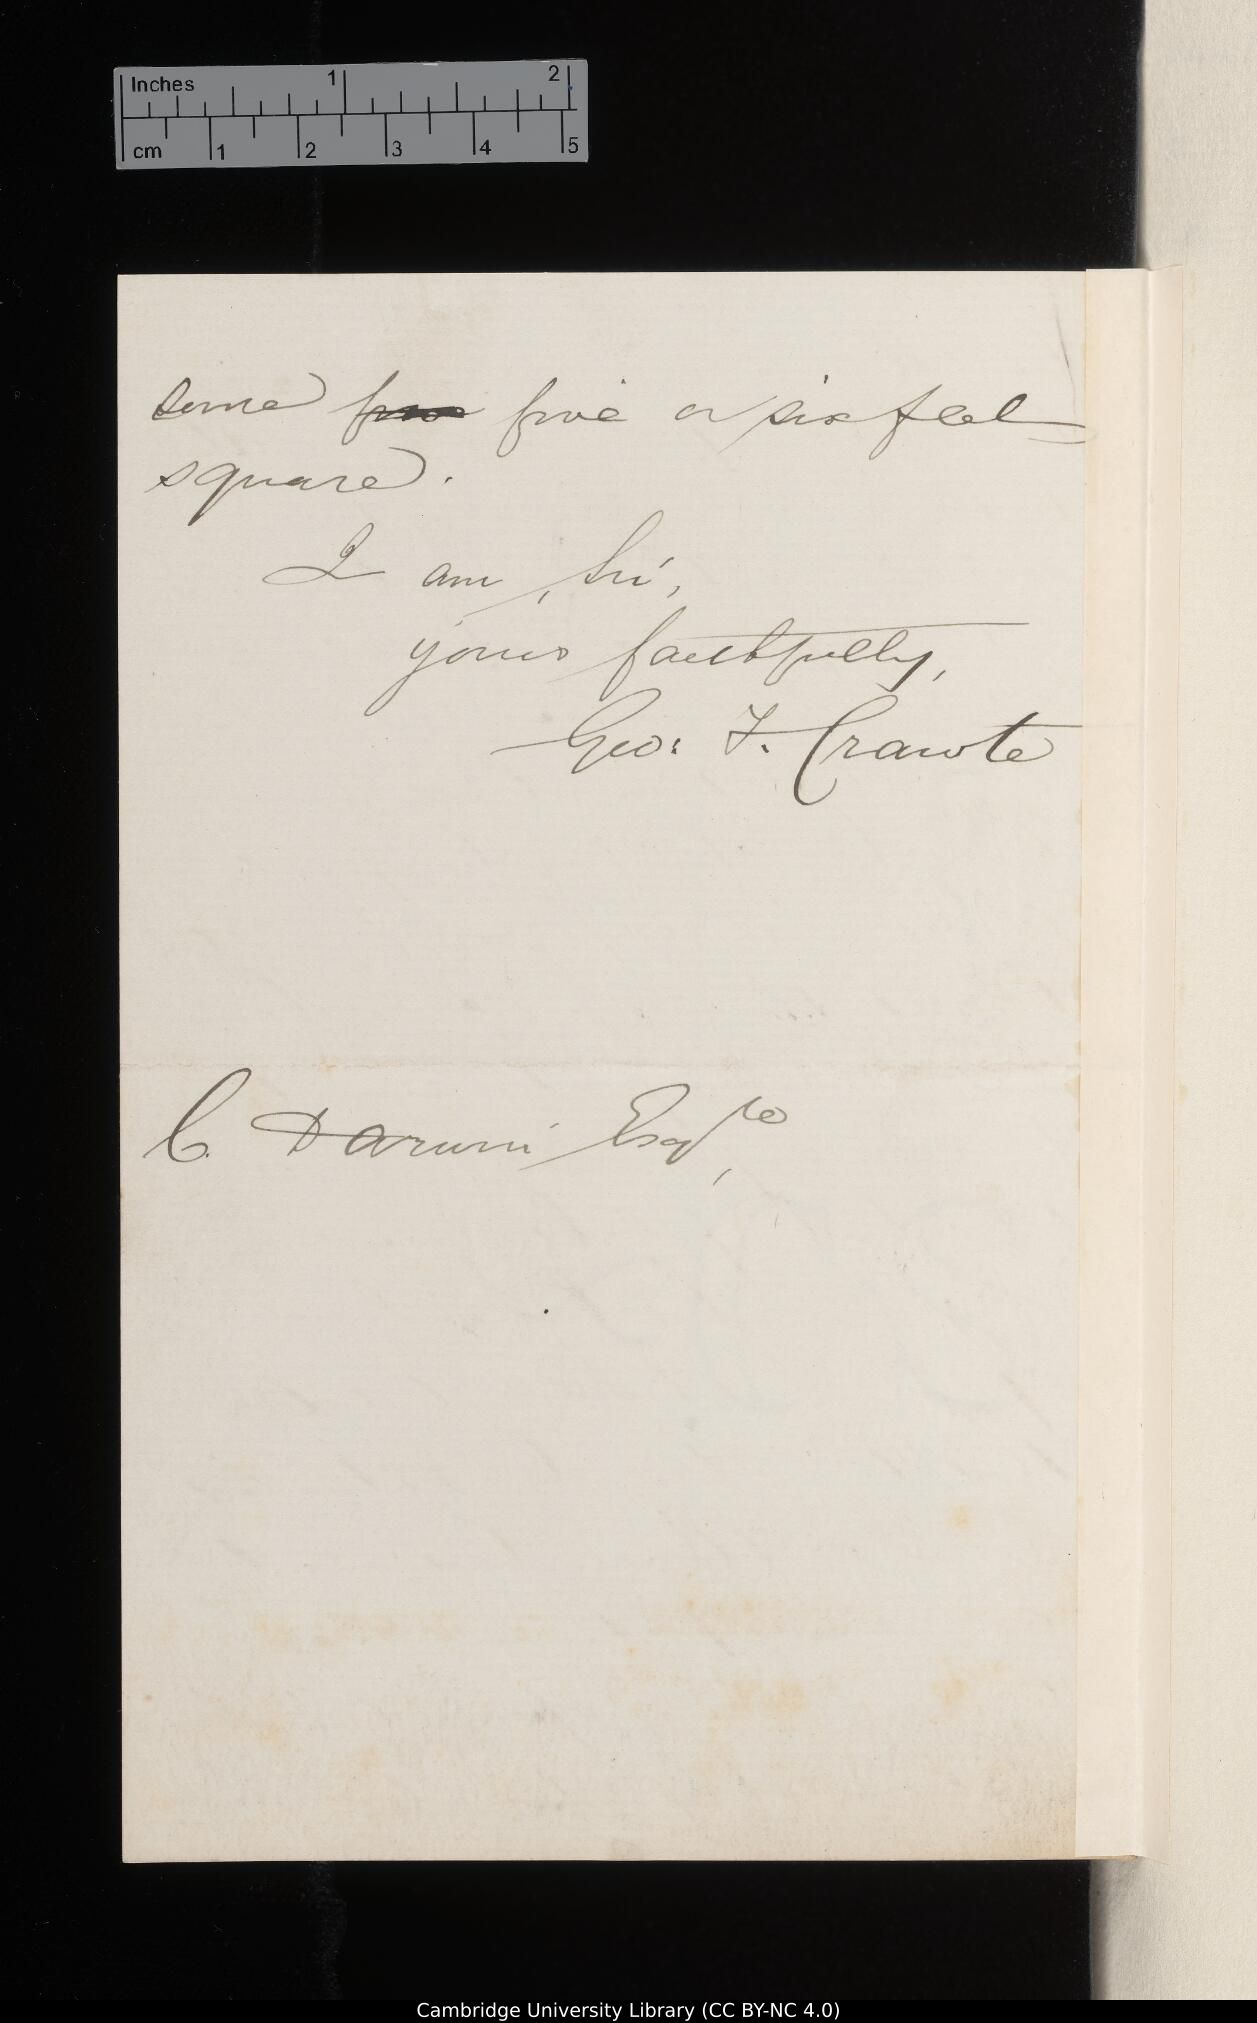 Inches 1 2
cm 1 2 3 4 5
some five or six feet
square.
I am, Sir,
yours faithfully,
Geo: F. Crawte
C. Darwin Esqre,
Cambridge University Library (CC BY-NC 4.0)